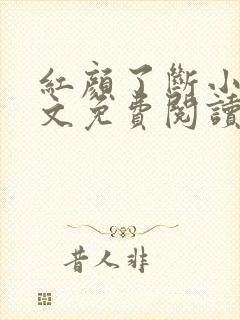 紅顏了斷小
文免費閱讀
昔人非